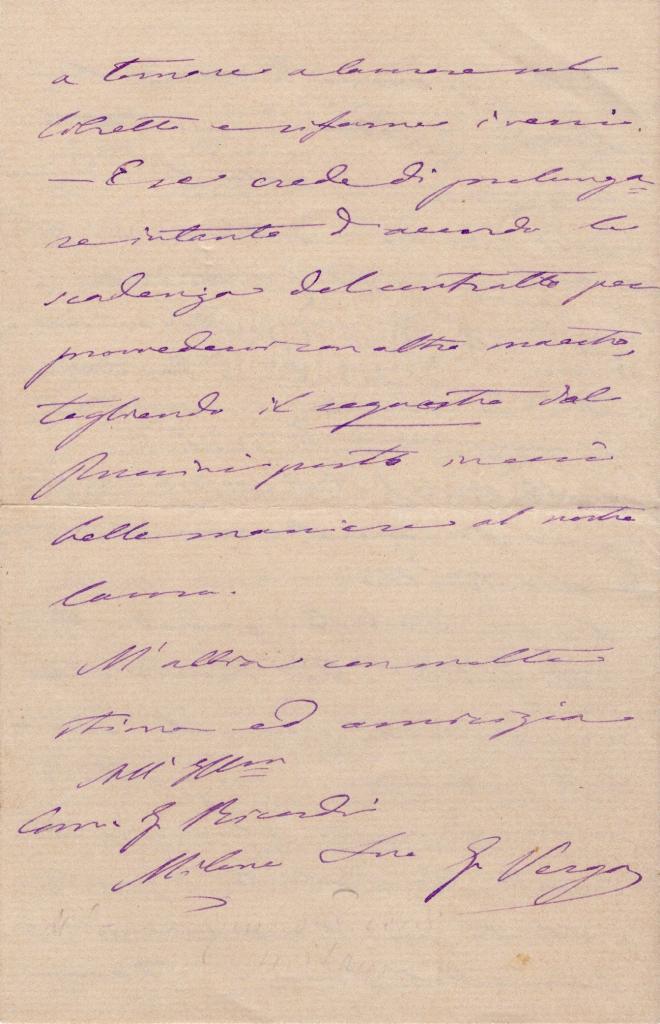 a tornare a lavorare sul
libretto e rifarne i versi.
— E se crede di prolunga=
re intanto d'accordo la
scadenza del contratto per
provvedervi con altro maestro,
togliendo il sequestro dal
Puccini posto in così
belle maniere al nostro
lavoro.
M'abbia con molta
stima ed amicizia
All' Ill^mo
Comm. G. Ricordi
Milano Suo G. Verga